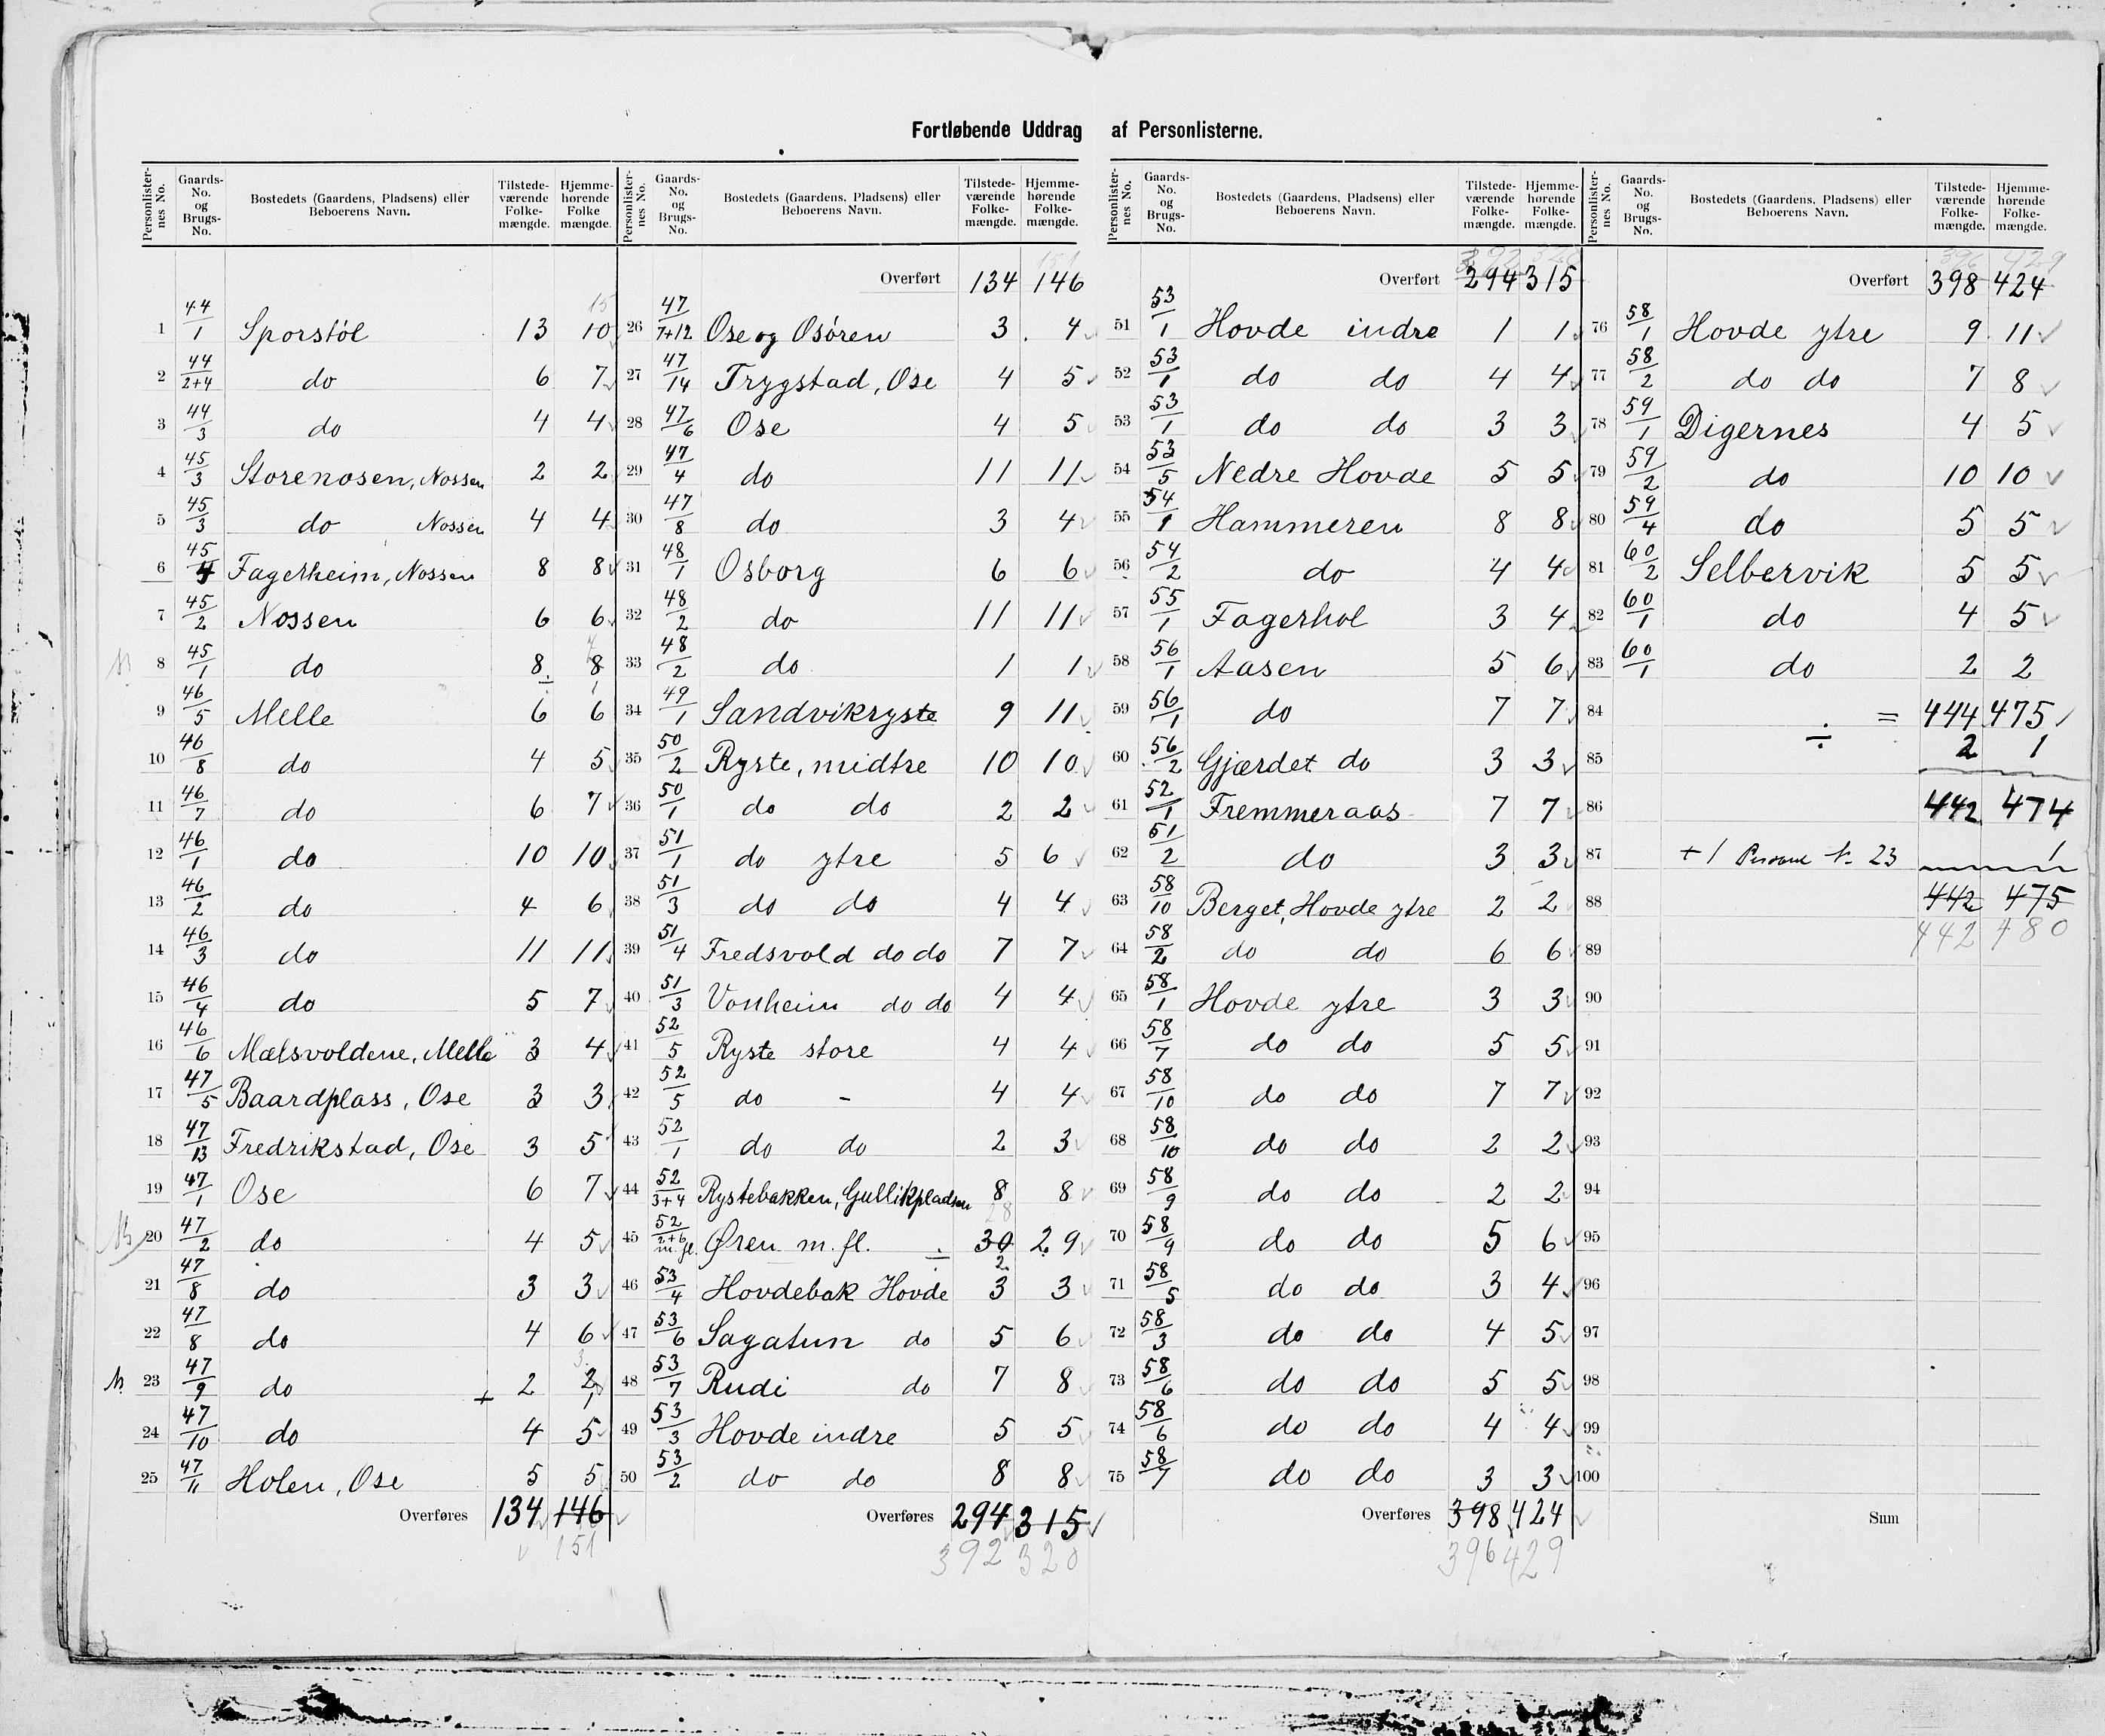 Fortløbende Uddrag af Personlisterne.
Personlisternes No. | Gaards-No. og Brugs-No. | Bostedets (Gaardens, Pladsens) eller Beboerens Navn. | Tilstedeværende Folkemængde. | Hjemmehørende Folkemængde.
1 44/1 Sporstöl 13 10 15
2 44/2+4 do 6 7
3 44/3 do 4 4
4 45/3 Storenosen, Nossen 2 2
5 45/3 do Nossen 4 4
6 45/4 Fagerheim, Nossen 8 8
7 45/2 Nossen 6 6
8 45/1 do 8 8 7
÷ 1
9 46/5 Melle 6 6
10 46/8 do 4 5
11 46/7 do 6 7
12 46/1 do 10 10
13 46/2 do 4 6
14 46/3 do 11 11
15 46/4 do 5 7
16 46/6 Mælsvoldene, Melle 3 4
17 47/5 Baardplass, Ose 3 3
18 47/13 Fredrikstad, Ose 3 5
19 47/1 Ose 6 7
20 47/2 do 4 5
21 47/8 do 3 3
22 47/8 do 4 6
23 47/9 do + 2 2 3 1
24 47/10 do 4 5
25 47/11 Holen, Ose 5 5
Overføres 134 146
151
Overført 134 146 151
26 47/7+12 Ose og Osören 3 4
27 47/14 Trygstad, Ose 4 5
28 47/6 Ose 4 5
29 47/4 do 11 11
30 47/8 do 3 4
31 48/1 Osborg 6 6
32 48/2 do 11 11
33 48/2 do 1 1
34 49/1 Sandvikryste 9 11
35 50/2 Ryste, midtre 10 10
36 50/1 do do 2 2
37 51/1 do ytre 5 6
38 51/3 do do 4 4
39 51/4 Fredsvold do do 7 7
40 51/3 Vonheim do do 4 4
41 52/5 Ryste store 4 4
42 52/5 do - 4 4
43 52/1 do do 2 3
44 52/3+4 Rystebakken, Gullikpladsen 8 8
45 52/2+6 m. fl. Øren m. fl. ÷ 30 29 28
2
46 53/4 Hovdebak Hovde 3 3
47 53/6 Sagatun do 5 6
48 53/7 Rudi do 7 8
49 53/3 Hovde indre 5 5
50 53/2 do do 8 8
Overføres 294 315
392 320
Overført 294 315
51 53/1 Hovde indre 1 1
52 53/1 do do 4 4
53 53/1 do do 3 3
54 53/5 Nedre Hovde 5 5
55 54/1 Hammeren 8 8
56 54/2 do 4 4
57 55/1 Fagerhol 3 4
58 56/1 Aasen 5 6
59 56/1 do 7 7
60 56/2 Gjærdet do 3 3
61 52/1 Fremmeraas 7 7
62 51/2 do 3 3
63 58/10 Berget, Hovde ytre 2 2
64 58/2 do do 6 6
65 58/1 Hovde ytre 3 3
66 58/7 do do 5 5
67 58/10 do do 7 7
68 58/10 do do 2 2
69 58/9 do do 2 2
70 58/9 do do 5 6
71 58/5 do do 3 4
72 58/3 do do 4 5
73 58/6 do do 5 5
74 58/6 do do 4 4
75 58/7 do do 3 3
Overføres 398 424
396 429
Overført 398 424 396 429
76 58/1 Hovde ytre 9 11
77 58/2 do do 7 8
78 59/1 Digernes 4 5
79 59/2 do 10 10
80 59/4 do 5 5
81 60/2 Selbervik 5 5
82 60/1 do 4 5
83 60/1 do 2 2
84 = 444 475
85 ÷ 2 1
86 442 474
87 + 1 No. 23 1
88 442 475
89 442 480
90
91
92
93
94
95
96
97
98
99
100
Sum